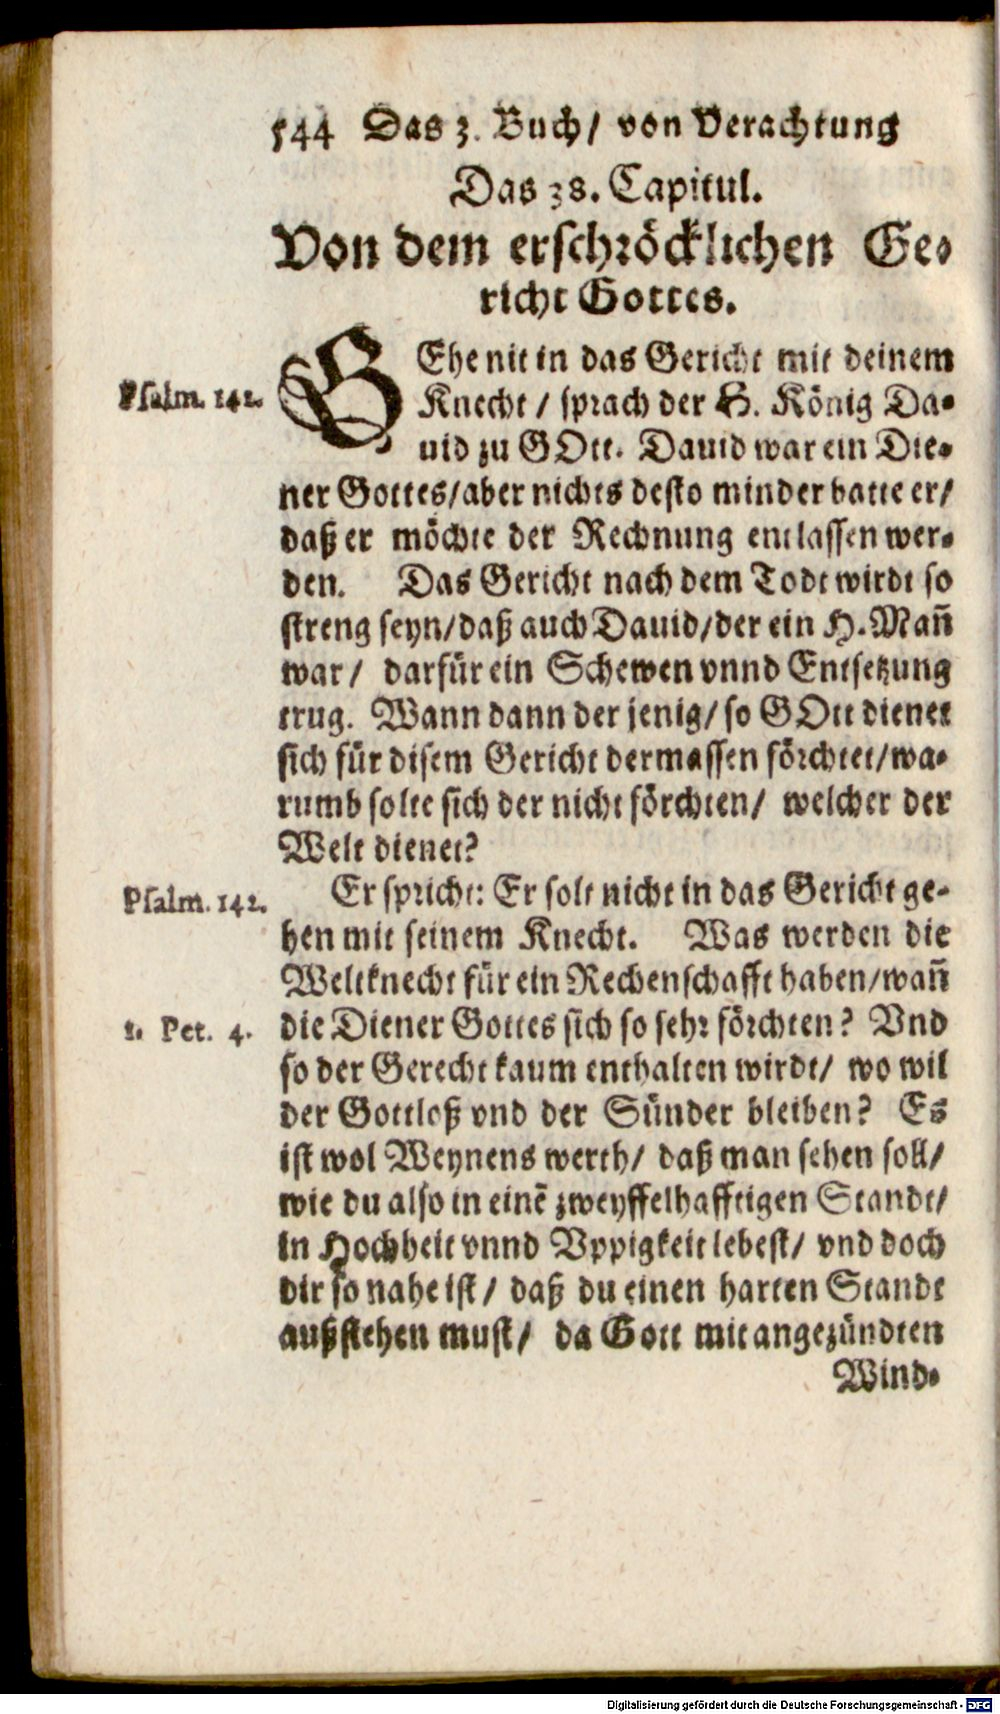 544 Das 3. Buch/ von Verachtung
Das 38. Capitul.
Von dem erschröcklichen Ge-
richt Gottes.
GEhe nit in das Gericht mit deinem
Psalm. 142.
Knecht / sprach der H. König Da-
uid zu GOtt. Dauid war ein Die-
ner Gottes/aber nichts desto minder batte er/
daß er möchte der Rechnung entlassen wer-
den. Das Gericht nach dem Todt wirdt so
streng seyn/daß auch Dauid/der ein H. Mañ
war/ darfür ein Schewen vnnd Entsetzung
trug. Wann dann der jenig/ so GOtt dienet
sich für disem Gericht dermassen förchtet/wa-
rumb solte sich der nicht förchten/ welcher der
Welt dienet?
Er spricht: Er solt nicht in das Gericht ge-
Psalm. 142.
hen mit seinem Knecht. Was werden die
Weltknecht für ein Rechenschafft haben/wañ
1. Pet. 4.
die Diener Gottes sich so sehr förchten? Vnd
so der Gerecht kaum enthalten wirdt/ wo wil
der Gottloß vnd der Sünder bleiben? Es
ist wol Weynens werth/ daß man sehen soll/
wie du also in einẽ zweyffelhafftigen Standt/
in Hochheit vnnd Vppigkeit lebest/ vnd doch
dir so nahe ist/ daß du einen harten Standt
außstehen must/ da Gott mit angezündten
Wind-
Digitalisierung gefördert durch die Deutsche Forschungsgemeinschaft - DFG